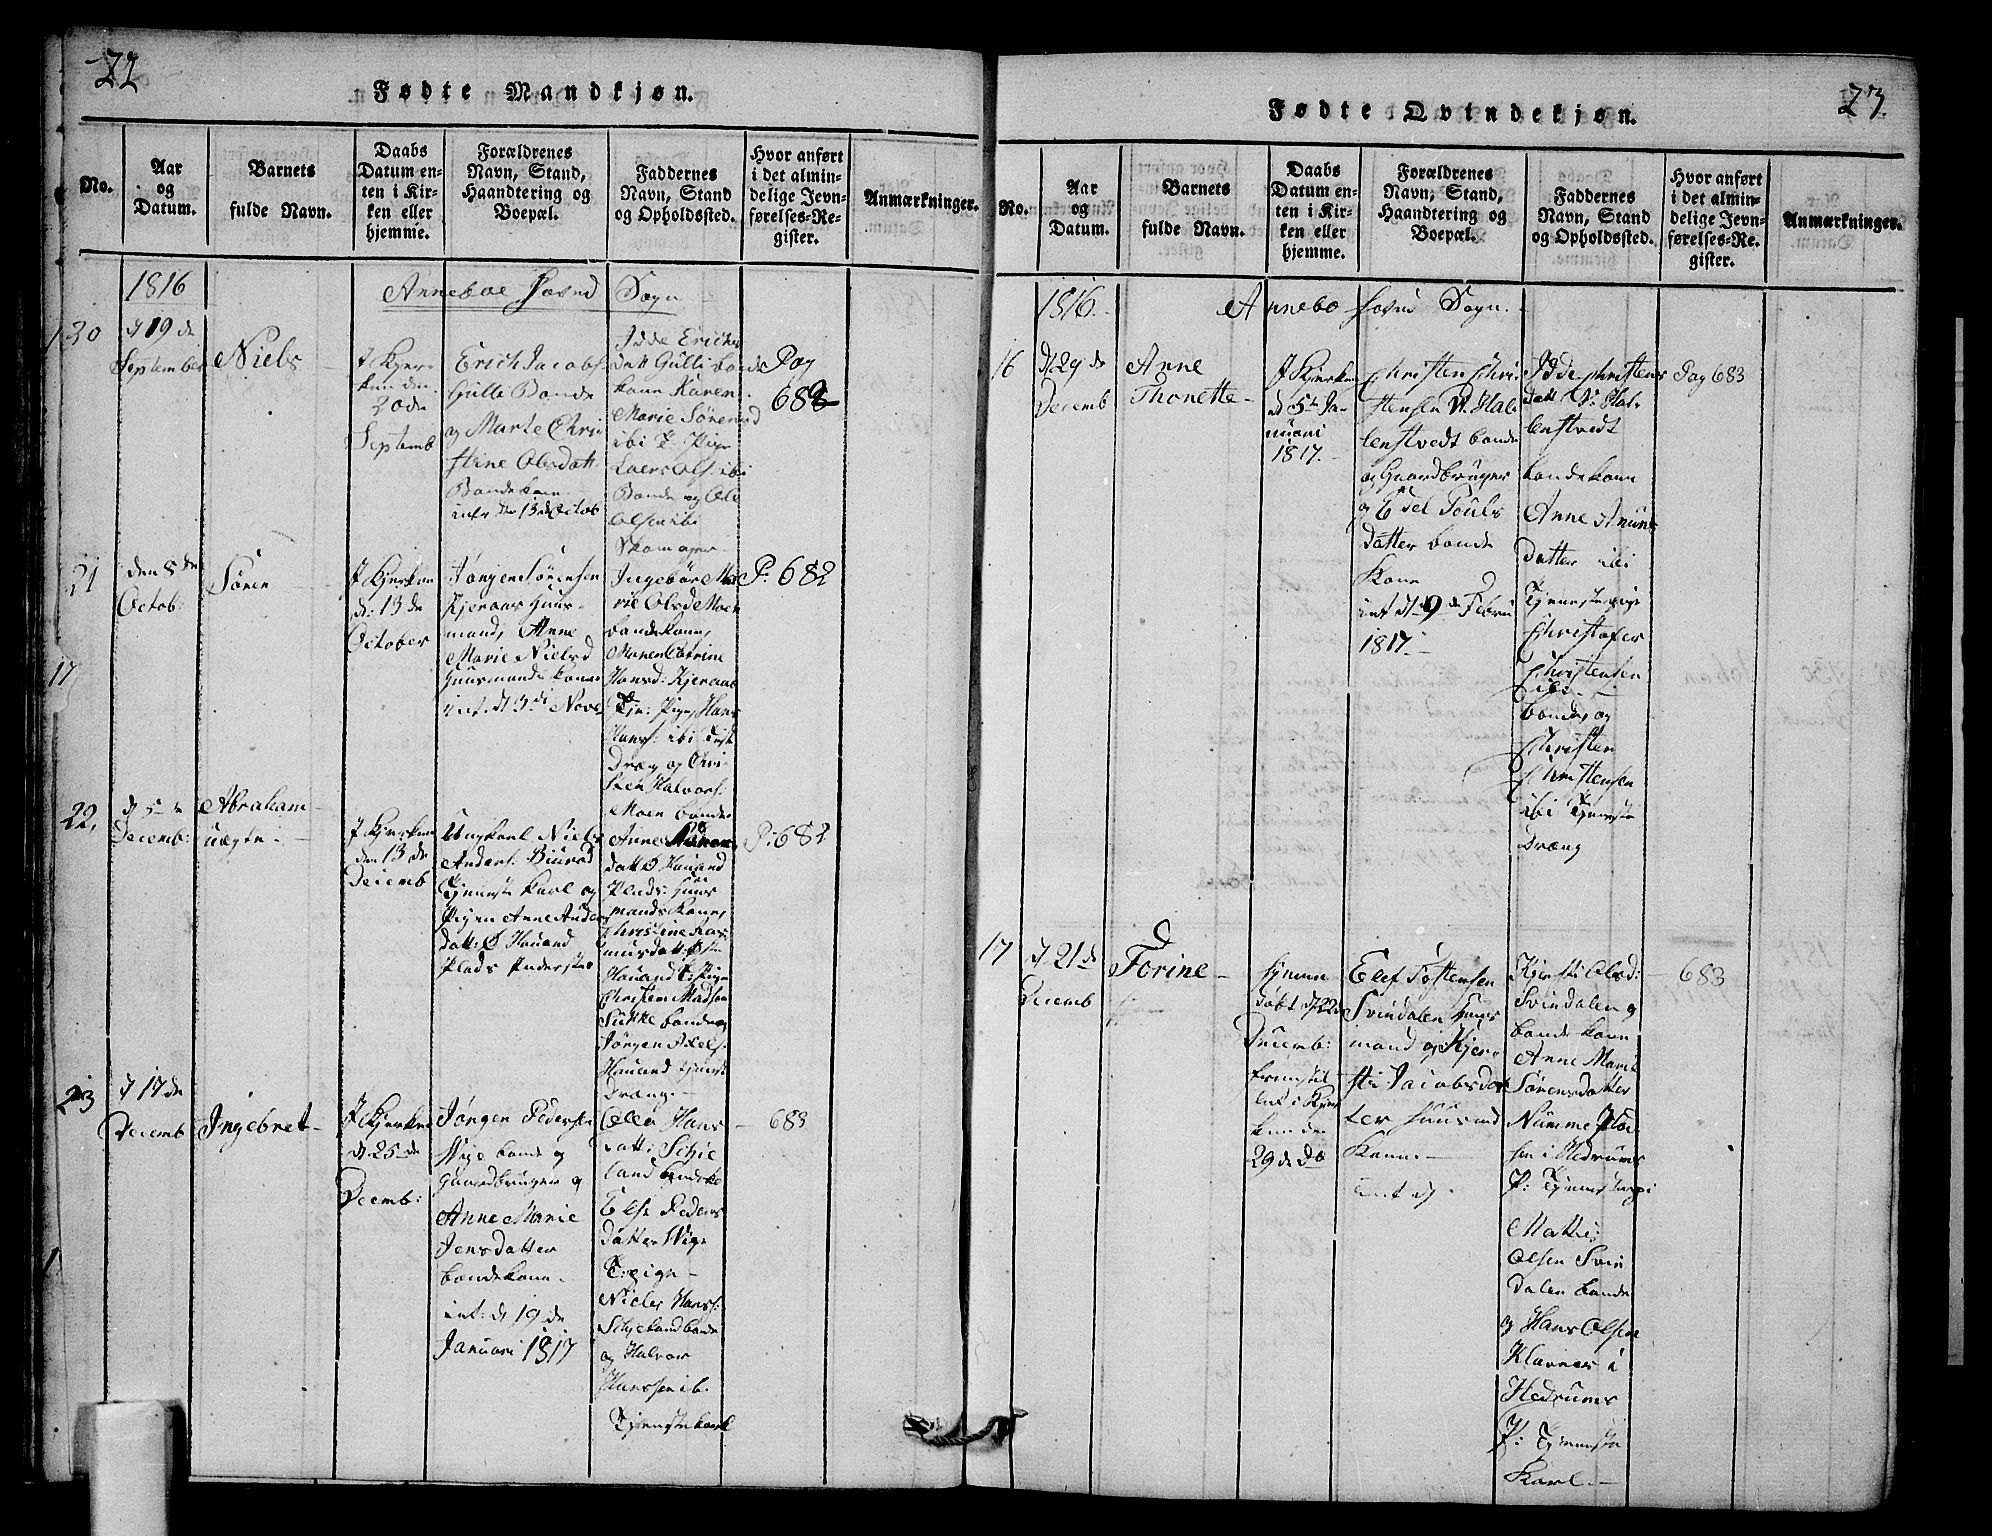 22
Fødte Mandkjøn.
No.
Aar
og
Datum.
Barnets
fulde Navn.
Daabs
Datum en-
ten i Kir-
ken eller
hjemme.
Forældrenes
Navn, Stand,
Haandtering og
Boepæl.
Faddernes
Navn, Stand
og Opholdssted.
Hvor anført
i det almin-
delige Jevn-
førelses-Re-
gister.
Anmærkninger.
1816
Anneboe Sogn
20
d 19 de
September
Niels
J Kjer-
ken den
20de
Septemb
Erich Jacobs.
Gulli Bonde
og Marte Chri
stine Olsdatt
Bondekone
intr den 13de Octob
Idde Erichs
datt Gulli bonde
kone Karen
Marie Sørensd
ibi T Pige
Laers Ols. ibi
Bonde og Ole
Olsen ibi
Skomager
Pag
682
21
den 8de
Octob:
Sören
J Kjerken
d: 13 de
October
Jörgen Sörensen
Kjeraas Huus-
mand, Anne
Marie Nielsd
Huusmandskone
int. d 3di Nove
Ingebör Ma
rie Olsd Moen
bondekone,
Maren Catrine
Hansd: Kjeraas
Tje: Pige, Hans
Hanss: ibi
Dræng og Chri
sten Halvors:
Moen bonde
P: 682
17
22,
d 5 te
Decemb:
Abraham
uægte
J Kjerken
den 13 de
Decemb
Ungkarl Niels
Anders:
Tjeneste Karl og
Pigen Anne Anders
datt: Ø Hauand
Plads
Anne
datt Ø Hauand
Plads: Huus
mands Kone,
Christine Ras
musdatt: Ø
Hauand T: Pige
Christen Madsen
Sukke bonde og
Jörgen Axels:
Hauand Tjenest
Dræng
P: 682
23
d 17 de
Decemb
Ingebret
J Kjerken
d. 25 de
Decemb:
Jörgen Peders
Wiige bonde og
Gaardbruger og
Anne Marie
Jensdatter
bondekone
int: d 19 de
Januari 1817
Olea Hans
datt: Schie
land bondeko
Else Peders
datter Wiige
T: pige
Nicler Hanss:
Schieland bonde
og Halvor
Hanssen ib.
Tjenestekarl
683
23.
Fødte Qvindekjøn.
No.
Aar
og
Datum.
Barnets
fulde Navn.
Daabs
Datum en-
ten i Kir-
ken eller
hjemme.
Forældrenes
Navn, Stand,
Haandtering og
Boepæl.
Faddernes
Navn, Stand
og Opholdssted.
Hvor anført
i det almin-
delige Jevn-
førelses-Re-
gister.
Anmærkninger.
1816.
Annebo Sogn
16
d 29 de
Decemb
Anne
Thonette
J Kjerken
d 5te Ja
nuari
1817.
Christen Chri
stensen V: Hal
lenstvedt bonde
og Gaardbruger
og Edel Pouls
datter bonde
Kone
int d 9de Febru
1817.
Idde Christens
datt V: Hal
lenstvedt
bondekone
Anne Amuns
datter ibi
Tjenstepige
Christofer
Christensen
ibi
bonde, og
Christen
Christensen
ibi Tjeneste
Dræng
Pag 683
17
d 21 de
Decemb
Torine
Hjemme
döbt d 22
Decemb:
fremstil
let i Kjer
ken den
29 de Do
Elef Tostensen
Svindalen Huus
mand og Kjer
sti Jacobsdat
ter Huusmd
Kone.
int d
Kjersti Olsd:
Svindalen og
bondekone
Anne Marie
Sörensdatter
Numme
i Hedrums
P: Tjenestepige
Mathis
Olsen Svin
dalen bonde
og Hans Olsen
Klavnes i
Hedrums
P: Tjeneste
Karl.
683